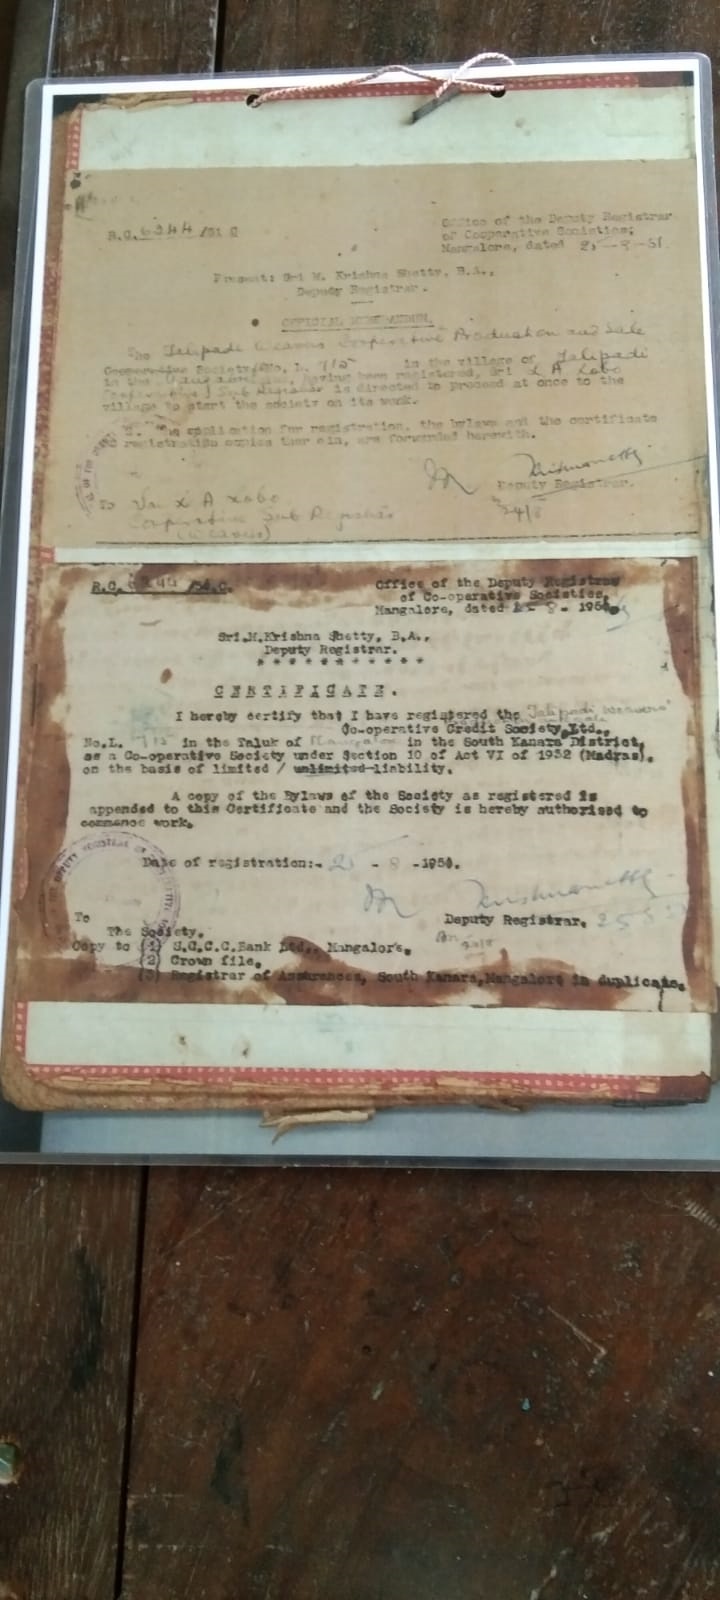 R.C. 6244 /51 C
Office of the Deputy Registrar
of Cooperative Societies,
Mangalore, dated 25-8-51.
Present: Sri M. Krishna Shetty, B.A.,
Deputy Registrar.
OFFICIAL MEMORANDUM.
The Talipadi Weavers Cooperative Production and Sale
Cooperative Society No. L. 715 in the village of Talipadi
in the having been registered, Sri L A Lobo
Sub Registrar is directed to proceed at once to the
village to start the society on its work.
2. The application for registration, the bylaws and the certificate
registration copies are forwarded herewith.
Deputy Registrar.
24/8
To Sri L A Lobo
Cooperative Sub Registrar
(Weavers)
R.C. 6244 /51.C.
Office of the Deputy Registrar
of Co-operative Societies,
Mangalore, dated 25- 8 - 195
Sri.M.Krishna Shetty, B.A.,
Deputy Registrar.
* * * * * * * * * * *
CERTIFICATE.
I hereby certify that I have registered the Talipadi Weavers'
Co-operative Credit Society,Ltd.,
No.L. 715 in the Taluk of Mangalore in the South Kanara District,
as a Co-operative Society under Section 10 of Act VI of 1932 (Madras).
on the basis of limited / unlimited liability.
A copy of the Bylaws of the Society as registered is
appended to this Certificate and the Society is hereby authorised to
commence work.
Date of registration:- 25 - 8 -195
Deputy Registrar.
To
The Society.
Copy to (1) S.C.C.C.Bank Ltd., Mangalore.
(2) Crown file.
(3) Registrar of Assurances, South Kanara,Mangalore in duplicate.